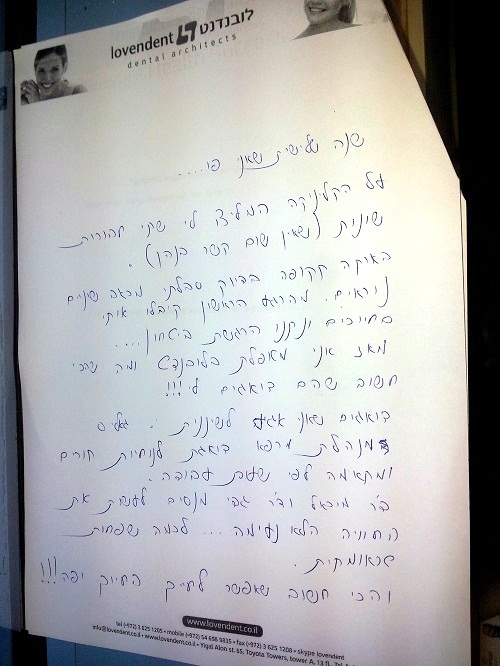 lovendent לובנדנט
dental architects
שנה שלישית שאני פה....
על הקליניקה המליצו לי שתי טבחות
שונות (שאין שום קשר בניהן).
באותה תקופה בדיוק סבלתי מכאבי שיניים
נוראים. מהרגע הראשון קיבלו אותי
בחיוכים ונתנו הרגשת ביטחון....
מאז אני מטופלת בלובנדנט ומה שהכי
חשוב שהם דואגים לי!!!
דואגים שאני אגיע לשיננית. גאלים
מנהלת מרפא דואגת לנוחיות תורים
ומתאמה לפי שעות עבודה.
ד"ר מיכאל וד"ר גבי מנסים לעשות את
החוויה הלא נעימה... לכמה שפחות
טראומתית.
והכי חשוב שאפשר לחייך החיוך יפה!!!
www.lovendent.co.il
tel (+972) 3 625 1205 • mobile (+972) 54 698 9835 • fax (+972) 3 625 1206 • skype lovendent
info@lovendent.co.il • www.lovendent.co.il • Yigal Alon st. 65, Toyota Towers, tower A, 13 fl., Tel